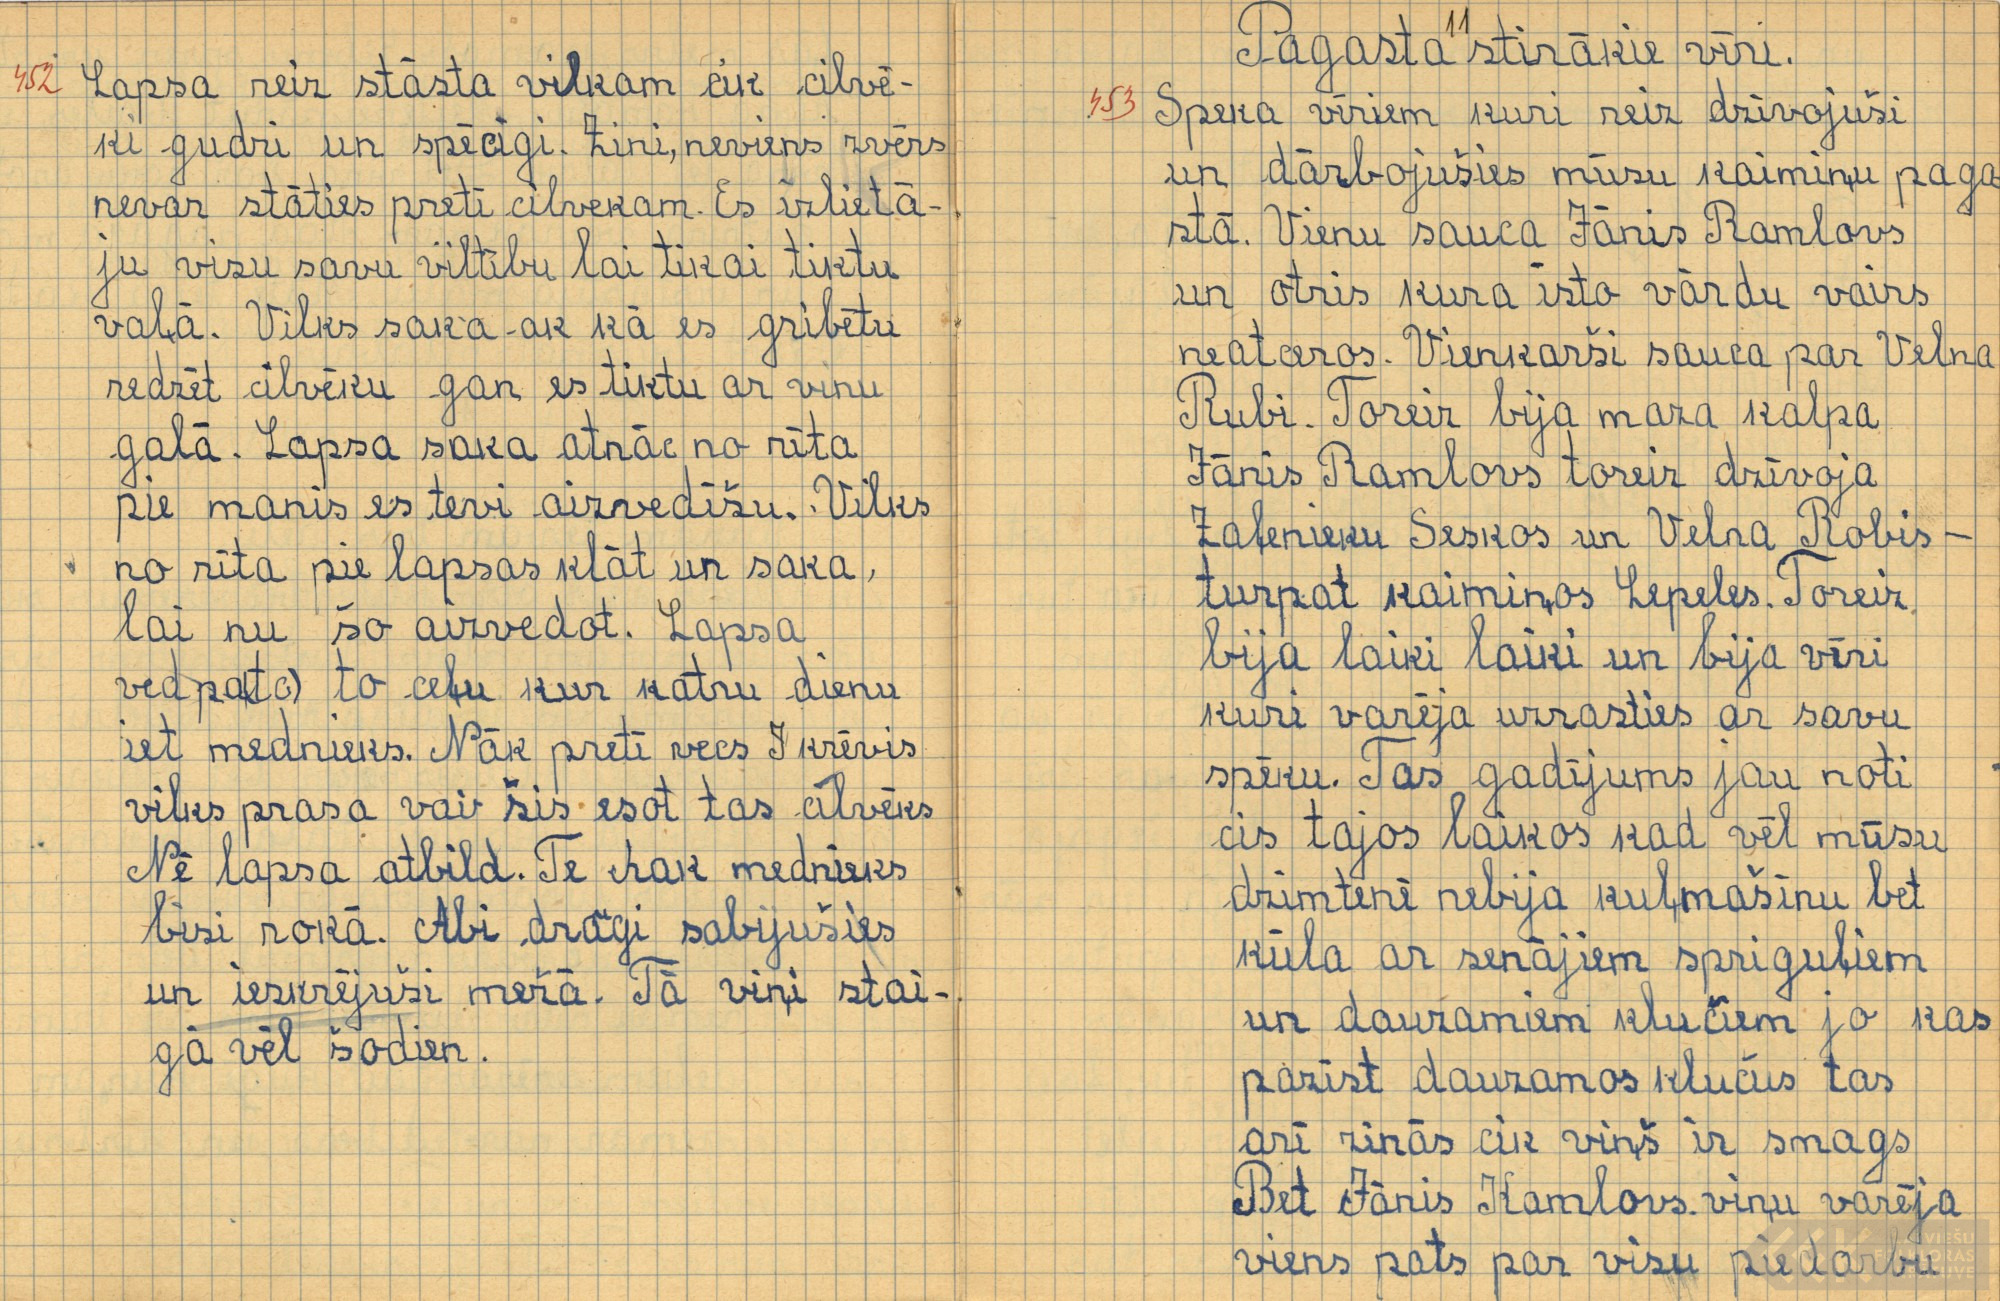 452 Lapsa reiz stāsta vilkam cik cilvē-
ki gudri un spēcīgi. Zini, neviens zvērs
nevar stāties pretī cilvekam. Es izlietā-
ju visu savu viltību lai tikai tiktu
vaļā. Vilks saka - ak kā es gribētu
redzēt cilvēku gan es tiktu ar vinu
galā. Lapsa saka atnāc no rīta
pie manis es tevi aizvedīšu. Vilks
no rīta pie lapsas klāt un saka,
lai nu šo aizvedot. Lapsa
ved pa(tc) to ceļu kur katru dienu
iet mednieks. Nāk pretī vecs Ikrēvis
vilks prasa vai šis esot tas cilvēks
Nē lapsa atbild. Te nak mednieks
bisi rokā. Abi draugi sabijušies
un ieskrējuši mežā. Tā viņi stai-
gā vēl šodien.
11
Pagasta stirākie vīri.
453 Speka vīriem kuri reiz dzīvojuši
un dārbojušies mūsu kaimiņu paga
stā. Vienu sauca Jānis Ramlovs
un otris kura īsto vārdu vairs
neatceros. Vienkarši sauca par Velna
Rubi. Toreiz bija maza kalpa
Jānis Ramlovs toreiz dzīvoja
Zaļenieku Seskos un Velna Robis –
turpat kaimiņos Lepeles. Toreiz
bija laiki laiki un bija vīri
kuri varēja uzrasties ar savu
spēku. Tas gadījums jau noti
cis tajos laikos kad vēl mūsu
dzimtenē nebija kuļmašīnu bet
kūla ar senājiem spriguļiem
un dauzamiem klučiem jo kas
pazīst dauzamos klučus tas
arī zinās cik viņš ir smags
Bet Jānis Kamlovs. viņu varēja
viens pats par visu piedarbu